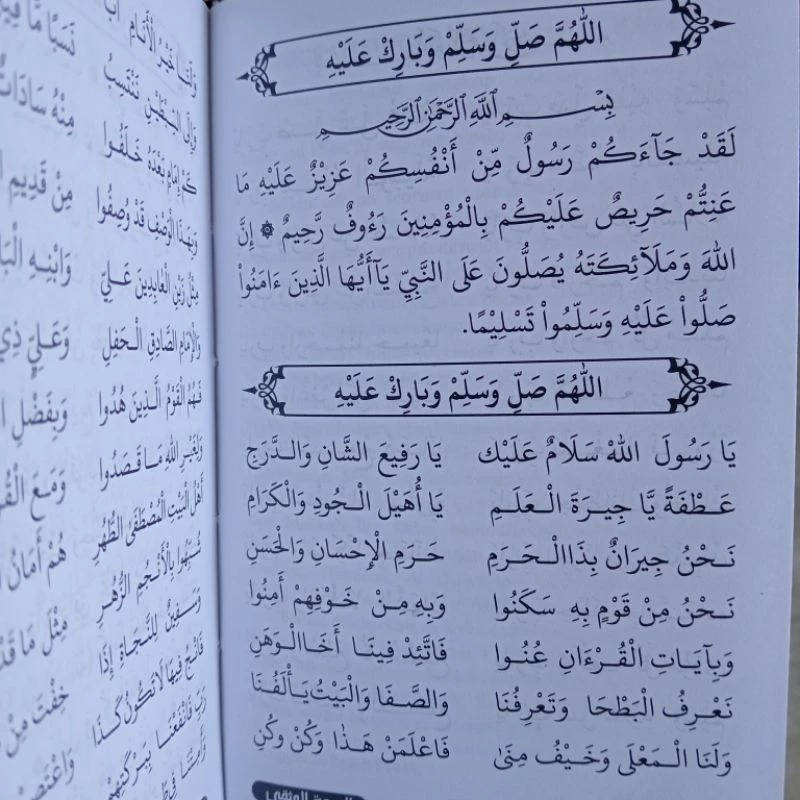 اللّٰهُمَّ صَلِّ وَسَلِّمْ وَبَارِكْ عَلَيْهِ
بِسْمِ ٱللَّهِ ٱلرَّحْمَٰنِ ٱلرَّحِيمِ
لَقَدْ جَآءَكُمْ رَسُولٌ مِّنْ أَنْفُسِكُمْ عَزِيْزٌ عَلَيْهِ مَا
عَنِتُّمْ حَرِيصٌ عَلَيْكُمْ بِالْمُؤْمِنِينَ رَءُوفٌ رَّحِيمٌ ۞ إِنَّ
اللهَ وَمَلَآئِكَتَهُ يُصَلُّونَ عَلَى النَّبِيِّ يَآأَيُّهَا الَّذِينَ ءَامَنُواْ
صَلُّواْ عَلَيْهِ وَسَلِّمُواْ تَسْلِيْمًا.
اللّٰهُمَّ صَلِّ وَسَلِّمْ وَبَارِكْ عَلَيْهِ
يَا رَسُولَ اللهْ سَلَامٌ عَلَيْك يَا رَفِيعَ الشَّانِ وَالدَّرَجِ
عَطْفَةً يَّا جِيرَةَ الْعَلَمِ يَا أُهَيْلَ الْجُودِ وَالْكَرَامِ
نَحْنُ جِيرَانٌ بِذَاالْحَرَمِ حَرَمِ الْإِحْسَانِ وَالْحَسَنِ
نَحْنُ مِنْ قَوْمٍ بِهِ سَكَنُوا وَبِهِ مِنْ خَوْفِهِمْ أَمِنُوا
وَبِآيَاتِ الْقُرْءَانِ عُنُوا فَاتَّئِدْ فِينَا أَخَاالْوَهَنِ
نَعْرِفُ الْبَطْحَا وَتَعْرِفُنَا وَالصَّفَا وَالْبَيْتُ يَأْلَفُنَا
وَلَنَا الْمَعْلَى وَخَيْفُ مِنَى فَاعْلَمَنْ هَذَا وَكُنْ وَكُنِ
وَلَنَا خَيْرُ الْأَنَامِ أَبُ
وَإِلَى السِّبْطَيْنِ نَنْتَسِبُ
كَمْ إِمَامٍ بَعْدَهُ خَلَفُوا
وَبِهَذَا الْوَصْفِ قَدْ وُصِفُوا
مِثْلُ زَيْنِ الْعَابِدِينَ عَلِيْ
وَالْإِمَامِ الصَّادِقِ الْحَفِلِ
فَهُمُ الْقَوْمُ الَّذِينَ هُدُوا
وَلِغَيْرِ اللهِ مَا قَصَدُوا
أَهْلُ الْبَيْتِ الْمُصْطَفَى الطُّهُرِ
شُبِّهُوا بِالْأَنْجُمِ الزُّهُرِ
وَسَفِينٌ لِلنَّجَاةِ إِذَا
فَانْجُ فِيهَا لَا تَكُونُ كَذَا
رَبِّ فَانْفَعْنَا بِبَرْكَتِهِمْ